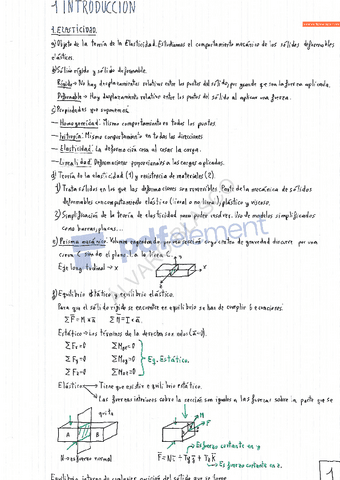 1 INTRODUCCION
1. ELASTICIDAD.
a) Objeto de la teoría de la Elasticidad. Estudiamos el comportamiento mecánico de los sólidos deformables
elásticos.
b) Sólido rígido y sólido deformable.
Rígido → No hay desplazamientos relativos entre los puntos del sólido, por grande que sea la fuerza aplicada.
Deformable → Hay desplazamiento relativo entre los puntos del sólido al aplicar una fuerza.
c) Propiedades que
— Homogeneidad: Mismo comportamiento en todos los puntos.
— Isotropía: Mismo comportamiento en todas las direcciones
— Elasticidad: La deformación cesa al cesar la carga.
— Linealidad: Deformaciones proporcionales a las cargas aplicadas.
d) Teoría de la elasticidad (1) y resistencia de materiales (2).
1) Trata sólidos en los que las deformaciones son reversibles. Parte de la mecánica de sólidos
deformables con comportamiento elástico (lineal o no lineal), plástico y viscoso.
2) Simplificación de la teoría de elasticidad para poder resolver. Uso de modelos simplificados
como barras, placas...
e) Prisma mecánico. Volumen engendrado por una sección cuyo centro de gravedad discurre por una
curva C
Eje longitudinal → x
pdfelement
f) Equilibrio estático y equilibrio elástico.
Para que el sólido rígido se encuentre en equilibrio se han de cumplir 6 ecuaciones:
Estático → Los términos de la derecha son nulos (a=0).
ΣFx=0 ΣMox=0
ΣFy=0 ΣMoy=0 Eq. estático.
ΣFz=0 ΣMoz=0
Elástico → Tiene que existir equilibrio estático.
Las fuerzas interiores sobre la sección son iguales a las fuerzas sobre la parte que se
quita
A B
M
F
N → esfuerzo normal
Esfuerzo cortante en y
Es fuerzo cortante en z.
1